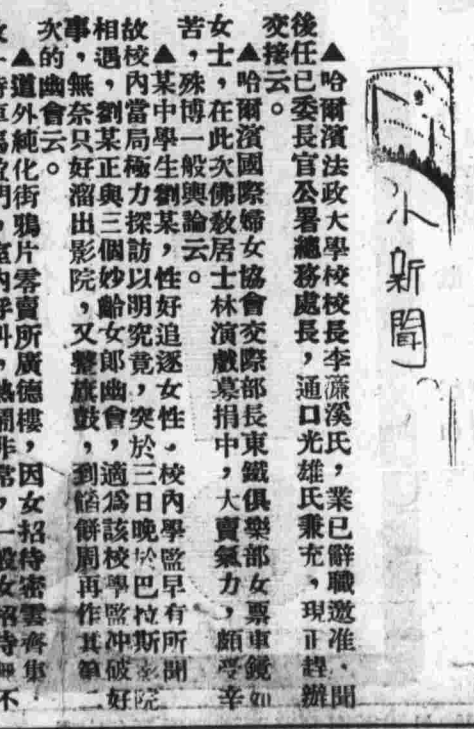 小新聞
▲哈爾濱法政大學校校長李濂溪氏，業已辭職邀准，聞
後任已委長官公署總務處長，通口光雄氏兼充，現正趕辦
交接云。
▲哈爾濱國際婦女協會交際部長東鐵俱樂部女票車鏡如
女士，在此次佛敎居士林演戲募捐中，大賣氣力，頗受辛
苦，殊博一般輿論云。
▲某中學生劉某，性好追逐女性，校內學監早有所聞
故校內當局極力探訪以明究竟，突於三日晚於巴拉斯影院
相遇，劉某正與三個妙齡女郞幽會，適爲該校學監冲破好
事，無奈只好溜出影院，又整旗鼓，到餡餅周再作其第二
次的幽會云。
▲道外純化街鴉片零賣所廣德樓，因女招待密雲齊集
門，室內呼叫，熱鬧非常，一般女招待